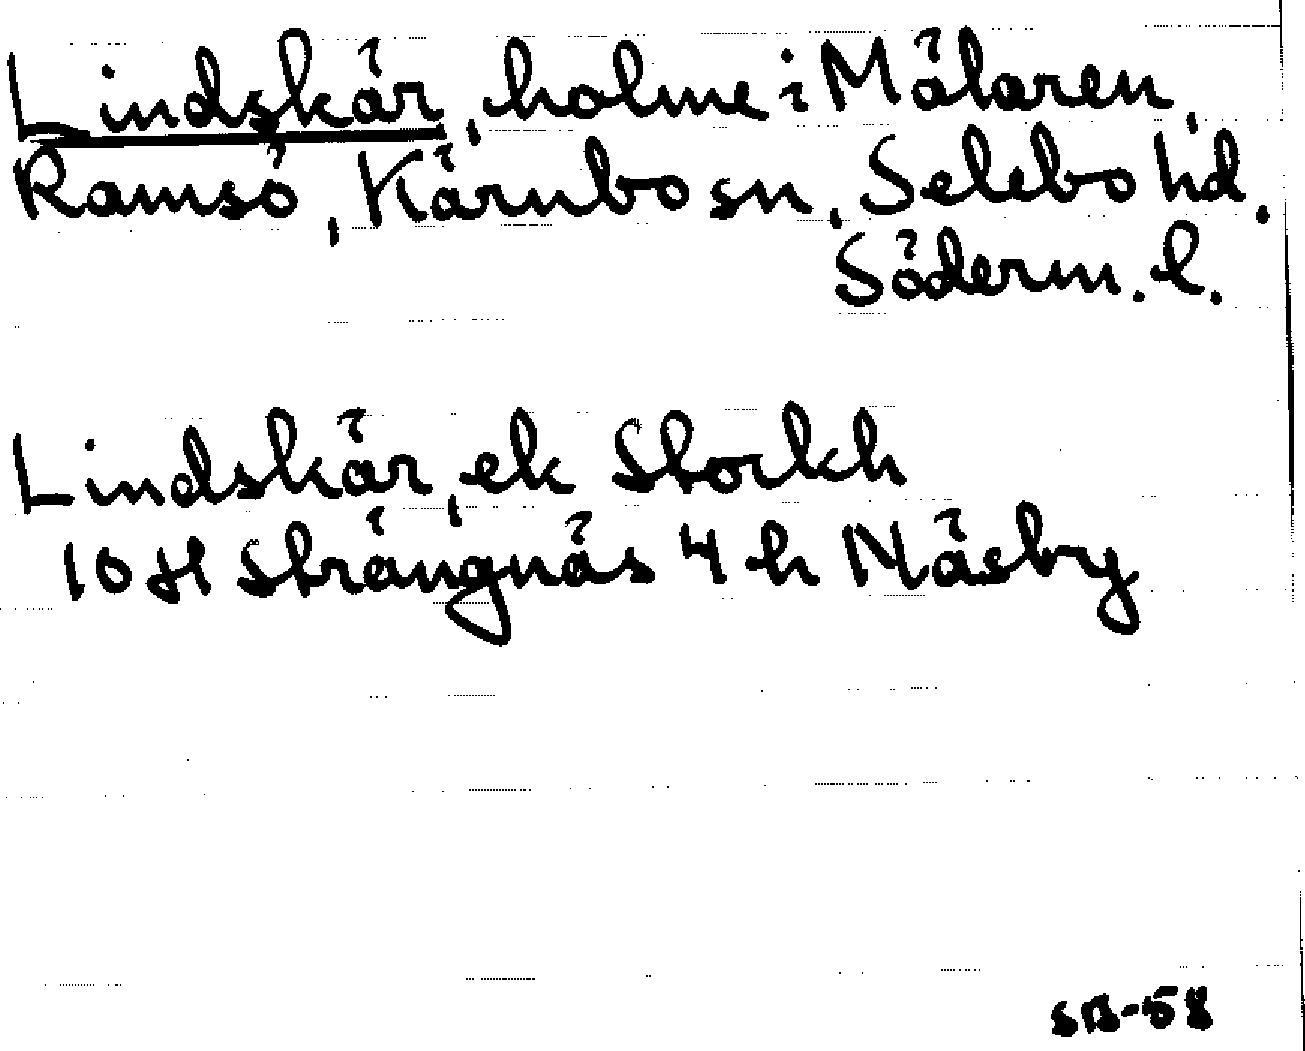 Lindskär, holme i Mälaren,
Ramsö, Kärnbo sn, Selebo hd.
Söderm. l.
Lindskär, ek Storkh
10H Strängnäs 4 h Näsby